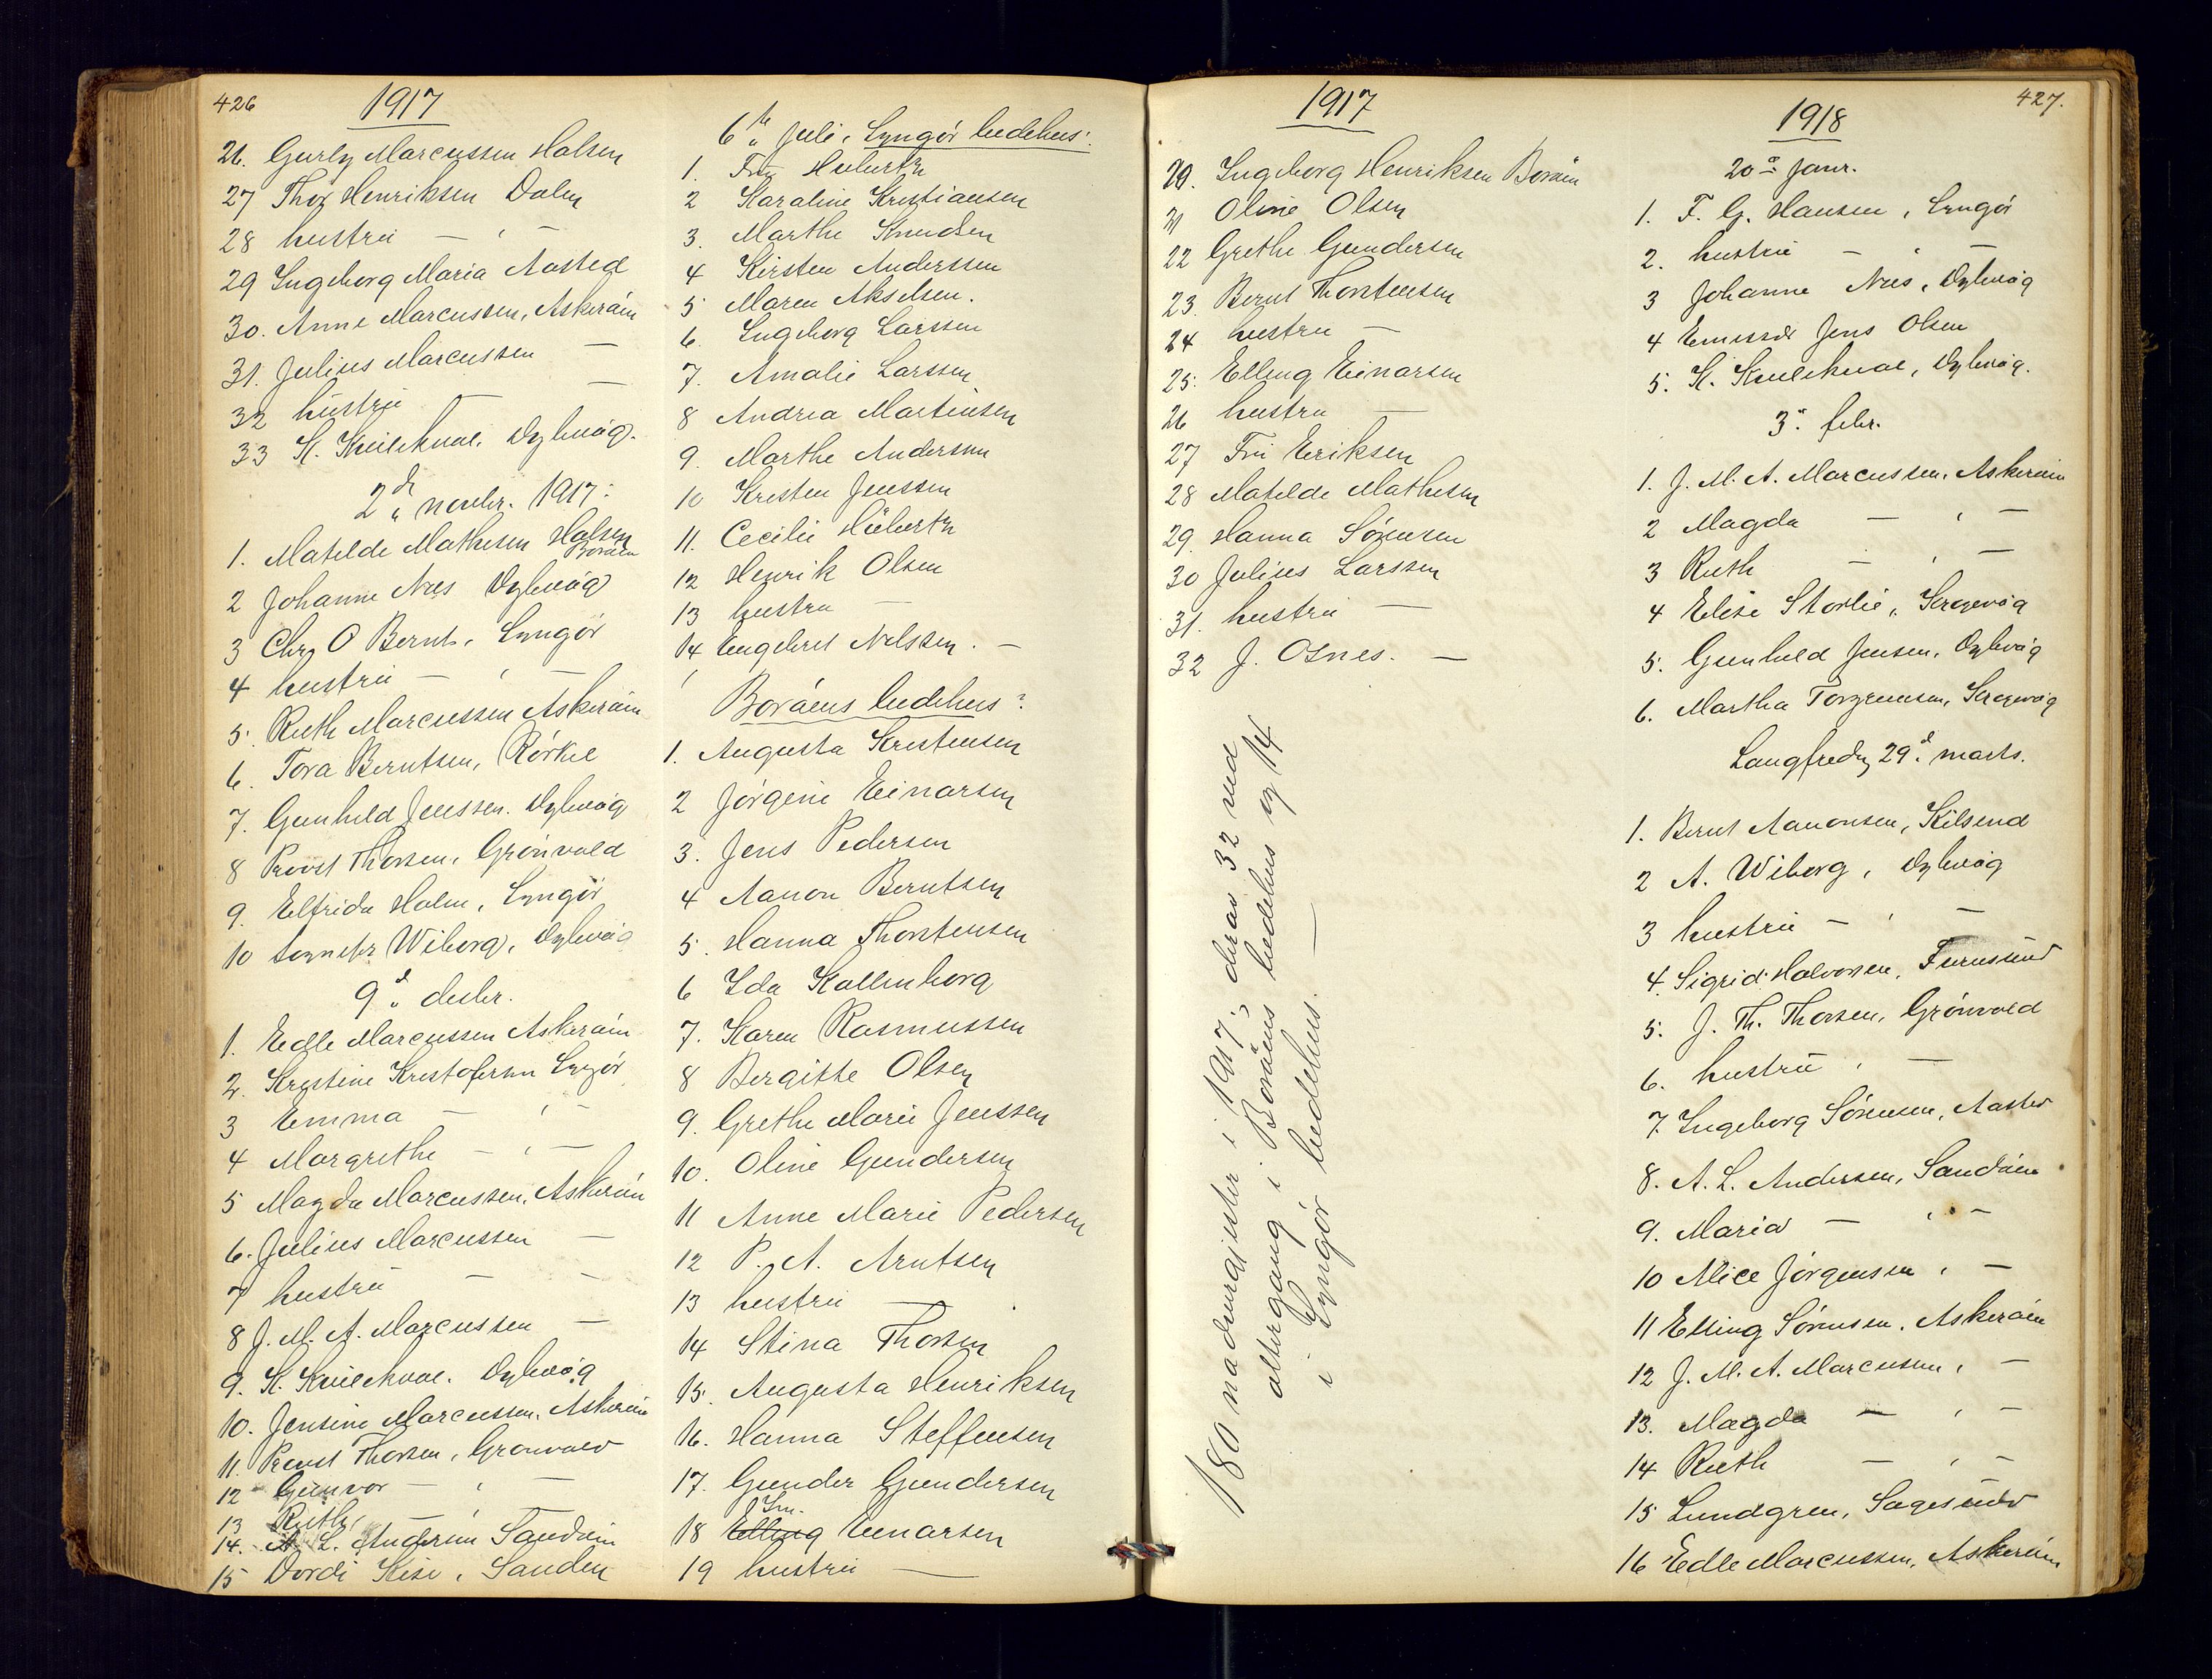 426
1917
26. Gurly Marcussen Halsen
27 Thor Henriksen Dalen
28 hustru — " —
29 Ingeborg Maria Aasted
30. Anne Marcussen, Askeröien
31. Julius Marcussen —
32 hustru — —
33 K. Kvilekval, Dybvåg.
2d novbr. 1917:
1. Matilde Mathisen Halsen Boröen
2 Johanne Næs Dybvåg
3 Chr. O Bernts, Lyngör
4 hustru — " —
5. Ruth Marcussen Askeröien
6. Tora Berntsen, Rörkil
7. Gunhild Jenssen. Dybvåg
8 Provst Thorsen, Grönvold
9. Elfrida Holm, Lyngör
10 sognepr Wiborg, Dybvåg
9d decbr.
1. Edle Marcussen Askeröien
2. Krystine Kristofersen Lyngör
3 Emma — " —
4 Margrethe — " —
5 Magda Marcussen, Askeröien
6. Julius Marcussen —
7 hustru — —
8 J. M. A. Marcussen —
9. K. Kvilekval. Dybvåg
10. Jensine Marcussen, Askeröien
11. Provst Thorsen, Gronvold
12 Gunvor — "
13 Ruth, "
14. A. L. Andersen Sandöien
15 Dordi Kise, Sanden
6te Juli, Lyngör bedehus:
1. Fru Hubertz
2 Karaline Kristiansen
3. Marthe Knudsen
4 Kirsten Anderssen
5 Maren Akselsen.
6. Ingeborg Larssen
7. Amalie Larssen
8 Andrea Martinsen
9. Marthe Andersen
10 Kristen Jenssen
11. Cecilie Hübertz
12 Henrik Olsen
13 hustru —
14 Engebret Nilssen. —
Boröens bedehus:
1. Augusta Kristensen
2 Jörgine Einarsen
3. Jens Pedersen
4 Aanon Berntsen
5. Hanna Thorstensen
6 Ida Kallenborg
7. Karen Rasmussen
8 Bergitte Olsen
9. Grethe Marie Jenssen
10. Oline Gundersen
11 Anne Marie Pedersen
12 P. A. Arntsen
13 hustru —
14 Stina Thorsen
15. Augusta Henriksen
16. Hanna Steffensen
17. Gunder Gundersen
18 Elling Einarsen
19 hustru —
1917
20. Ingeborg Henriksen Boröen
21 Oline Olsen
22 Grethe Gundersen
23. Bernt Thorstensen
24 hustru —
25. Elling Einarsen
26 hustru —
27 Fru Eriksen
28 Matilde Mathisen
29. Hanna Sörensen
30 Julius Larssen
31. hustru —
32 J. Osnes. —
180 nadverdgjester i 1917; deraf 32 ved
altergang i Boröens bedehus og 14
i Lyngör bedehus. —
427.
1918
20d janr.
1. F. G. Hansen, Lyngör
2. hustru — " —
3 Johanne Næs, Dybvåg
4 Emissær Jens Olsen
5. K. Kvilekval, Dybvåg.
3d febr.
1. J. M. A. Marcussen, Askeröien
2 Magda — " —
3 Ruth — " —
4 Elise Storlie, Krogvåg
5. Gunhild Jensen, Dybvåg
6. Martha Torgrimsen, Krogvåg
Langfredg 29d marts.
1. Bernt Aanonsen, Kilsund
2 A. Wiborg, Dybvåg
3 hustru — " —
4. Sigrid Halvorsen, Furusund
5. J. Th. Thorsen, Grönvold
6. hustru " —
7. Ingeborg Sörensen, Aasted
8. A. L. Andersen, Sandöien
9. Maria — " —
10 Alice Jörgensen, —
11 Elling Sörensen, Askeröien
12 J. M. A. Marcussen, —
13. Magda — " —
14 Ruth — " —
15 Lundgren, Sagesund
16 Edle Marcussen, Askeröien